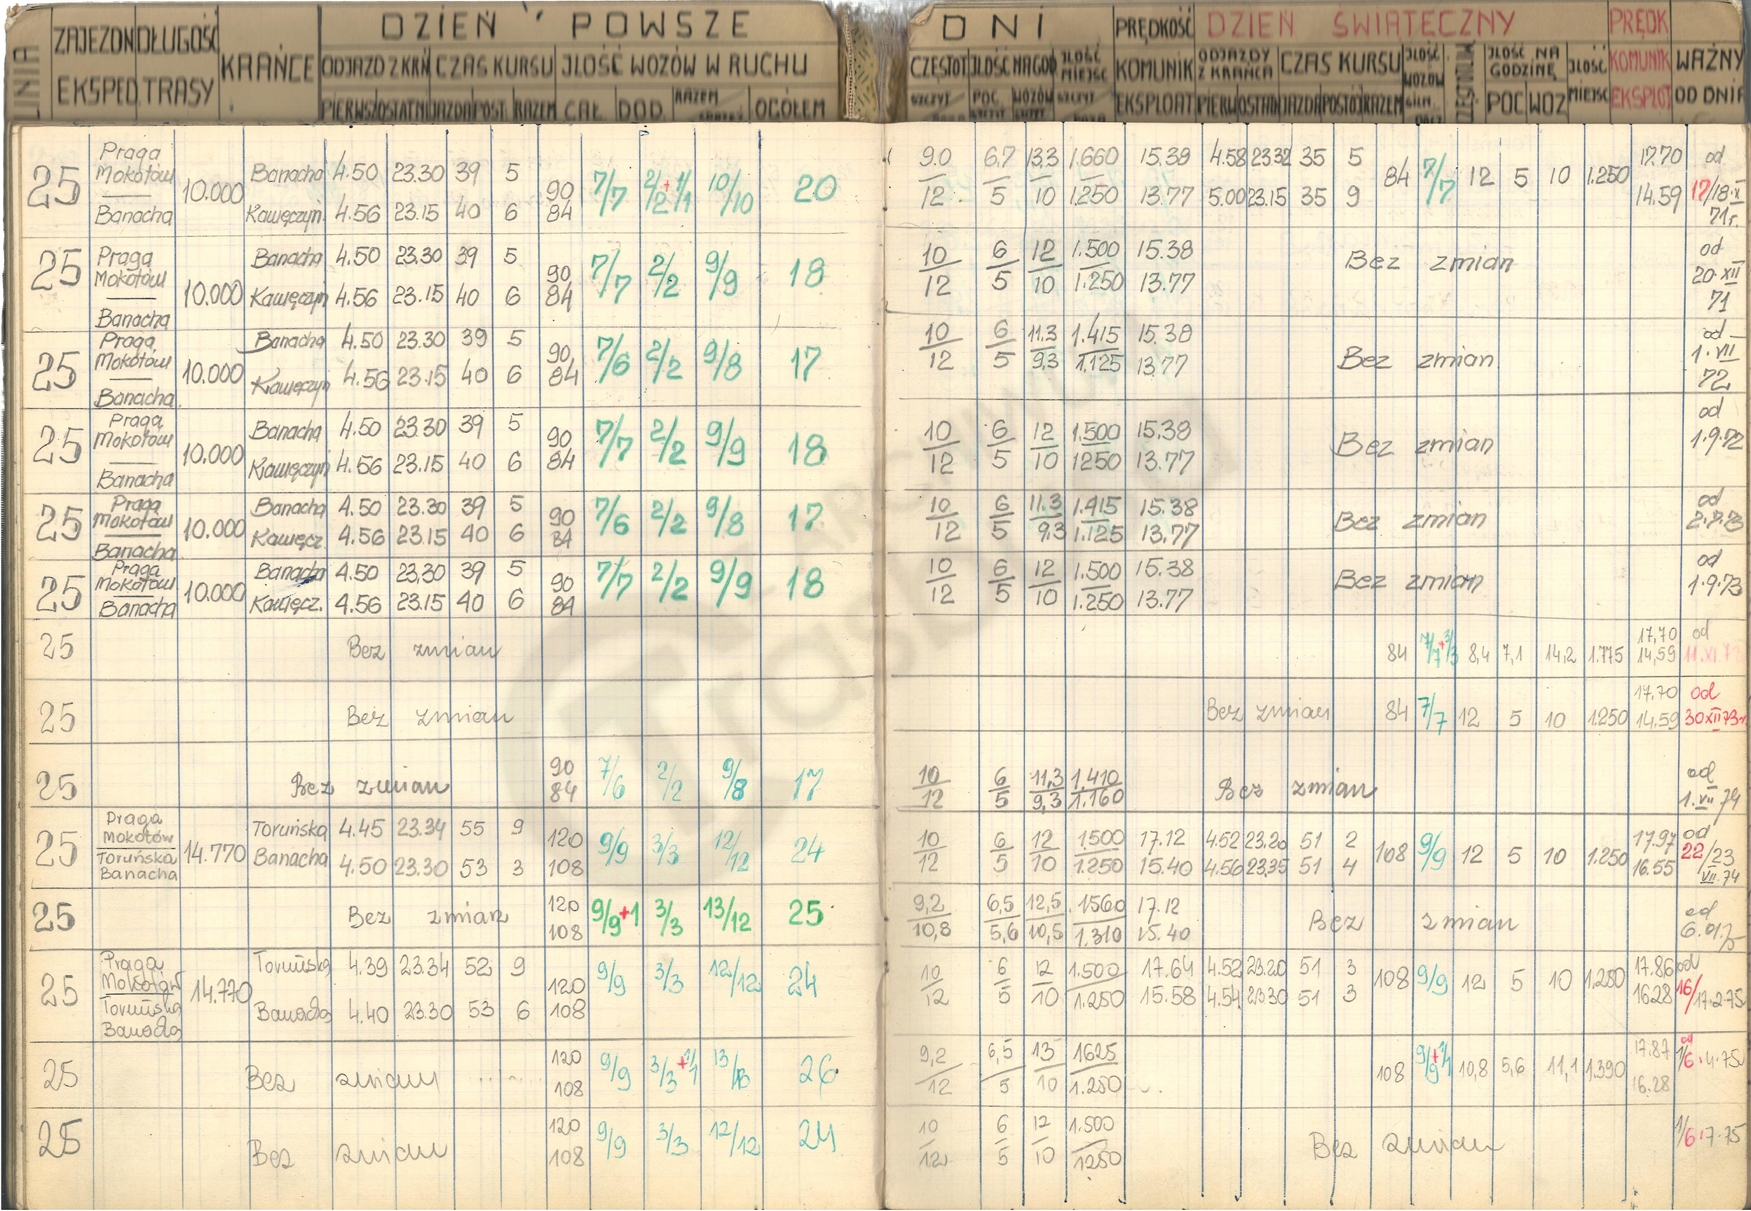 LINIA ZAJEZDN. DŁUGOŚĆ KRAŃCE DZIEŃ POWSZE DNI PRĘDKOŚĆ DZIEŃ ŚWIĄTECZNY PRĘDK WAŻNY
EKSPED. TRASY ODJAZD Z KRŃ CZAS KURSU ILOŚĆ WOZÓW W RUCHU CZĘSTOT ILOŚĆ NA GOD ILOŚĆ MIEJSC KOMUNIK ODJAZDY Z KRAŃCA CZAS KURSU ILOŚĆ WOZÓW ILOŚĆ NA GODZINĘ ILOŚĆ MIEJSC KOMUNIK OD DNIA
PIERWSZ OSTATNI JAZDA POST. RAZEM CAŁ. DOD. RAZEM OGÓŁEM SZCZYT POC. WOZÓW SZCZYT EKSPLOAT PIERW OSTAN JAZDA POSTÓJ RAZEM POC WOZ EKSPLOT
25 Praga Mokotów Banacha 10.000 Banacha 4.50 23.30 39 5 90 7/7 2/2+1/1 10/10 20 9.0 6,7 13,3 1.660 15.38 4.58 23.32 35 5 84 7/7 12 5 10 1.250 17.70 od
Kawęczyń. 4.56 23.15 40 6 84 12 5 10 1.250 13.77 5.00 23.15 35 9 14.59 17/18.X 71r.
25 Praga Mokotów Banacha 10.000 Banacha 4.50 23.30 39 5 90 7/7 2/2 9/9 18 10 6 12 1.500 15.38 Bez zmian od
Kawęczyń 4.56 23.15 40 6 84 12 5 10 1.250 13.77 20.XII 71
25 Praga Mokotów Banacha 10.000 Banacha 4.50 23.30 39 5 90 7/6 2/2 9/8 17 10 6 11.3 1.415 15.38 Bez zmian od
Kawęczyń 4.56 23.15 40 6 84 12 5 9,3 1.125 13.77 1.VII 72
25 Praga Mokotów Banacha 10.000 Banacha 4.50 23.30 39 5 90 7/7 2/2 9/9 18 10 6 12 1.500 15.38 Bez zmian od
Kawęczyń 4.56 23.15 40 6 84 12 5 10 1250 13.77 1.9.72
25 Praga Mokotów Banacha 10.000 Banacha 4.50 23.30 39 5 90 7/6 2/2 9/8 17 10 6 11.3 1.415 15.38 Bez zmian od
Kawęcz. 4.56 23.15 40 6 84 12 5 9,3 1.125 13.77
25 Praga Mokotów Banacha 10.000 Banacha 4.50 23.30 39 5 90 7/7 2/2 9/9 18 10 6 12 1.500 15.38 Bez zmian od
Kawęcz. 4.56 23.15 40 6 84 12 5 10 1.250 13.77 1.9.73
25 Bez zmian 84 7/7+3/3 8,4 7,1 14,2 1.775 17,70 14,59 od
25 Bez zmian Bez zmian 84 7/7 12 5 10 1.250 17.70 14.59 od 30XII73r
25 Bez zmian 90 84 7/6 2/2 9/8 17 10/12 6/5 11,3/9,3 1.410/1.160 Bez zmian od 1.VII 74
25 Praga Mokotów Toruńska Banacha 14.770 Toruńska 4.45 23.34 55 9 120 9/9 3/3 12/12 24 10 6 12 1500 17.12 4.52 23.20 51 2 108 9/9 12 5 10 1.250 17.97 od
Banacha 4.50 23.30 53 3 108 12 5 10 1.250 15.40 4.56 23.35 51 4 16.55 22/23 VII.74
25 Bez zmian 120 108 9/9+1 3/3 13/12 25 9,2/10,8 6,5/5,6 12,5/10,5 1560/1.310 17.12 15.40 Bez zmian od
25 Praga Mokotów Toruńska Banacha 14.770 Toruńska 4.39 23.34 52 9 120 9/9 3/3 12/12 24 10 6 12 1.500 17.64 4.52 23.20 51 3 108 9/9 12 5 10 1.250 17.86 od
Banacha 4.40 23.30 53 6 108 12 5 10 1.250 15.58 4.54 23.30 51 3 16.28 16/17.2.75
25 Bez zmian 120 108 9/9 3/3+1/1 13/13 26 9,2/12 6,5/5 13/10 1625/1.250 108 10,8 5,6 11,1 1.390 17.87 16.28 od 1/6.4.75
25 Bez zmian 120 108 9/9 3/3 12/12 24 10/12 6/5 12/10 1.500/1250 Bez zmian 1/6.7.75